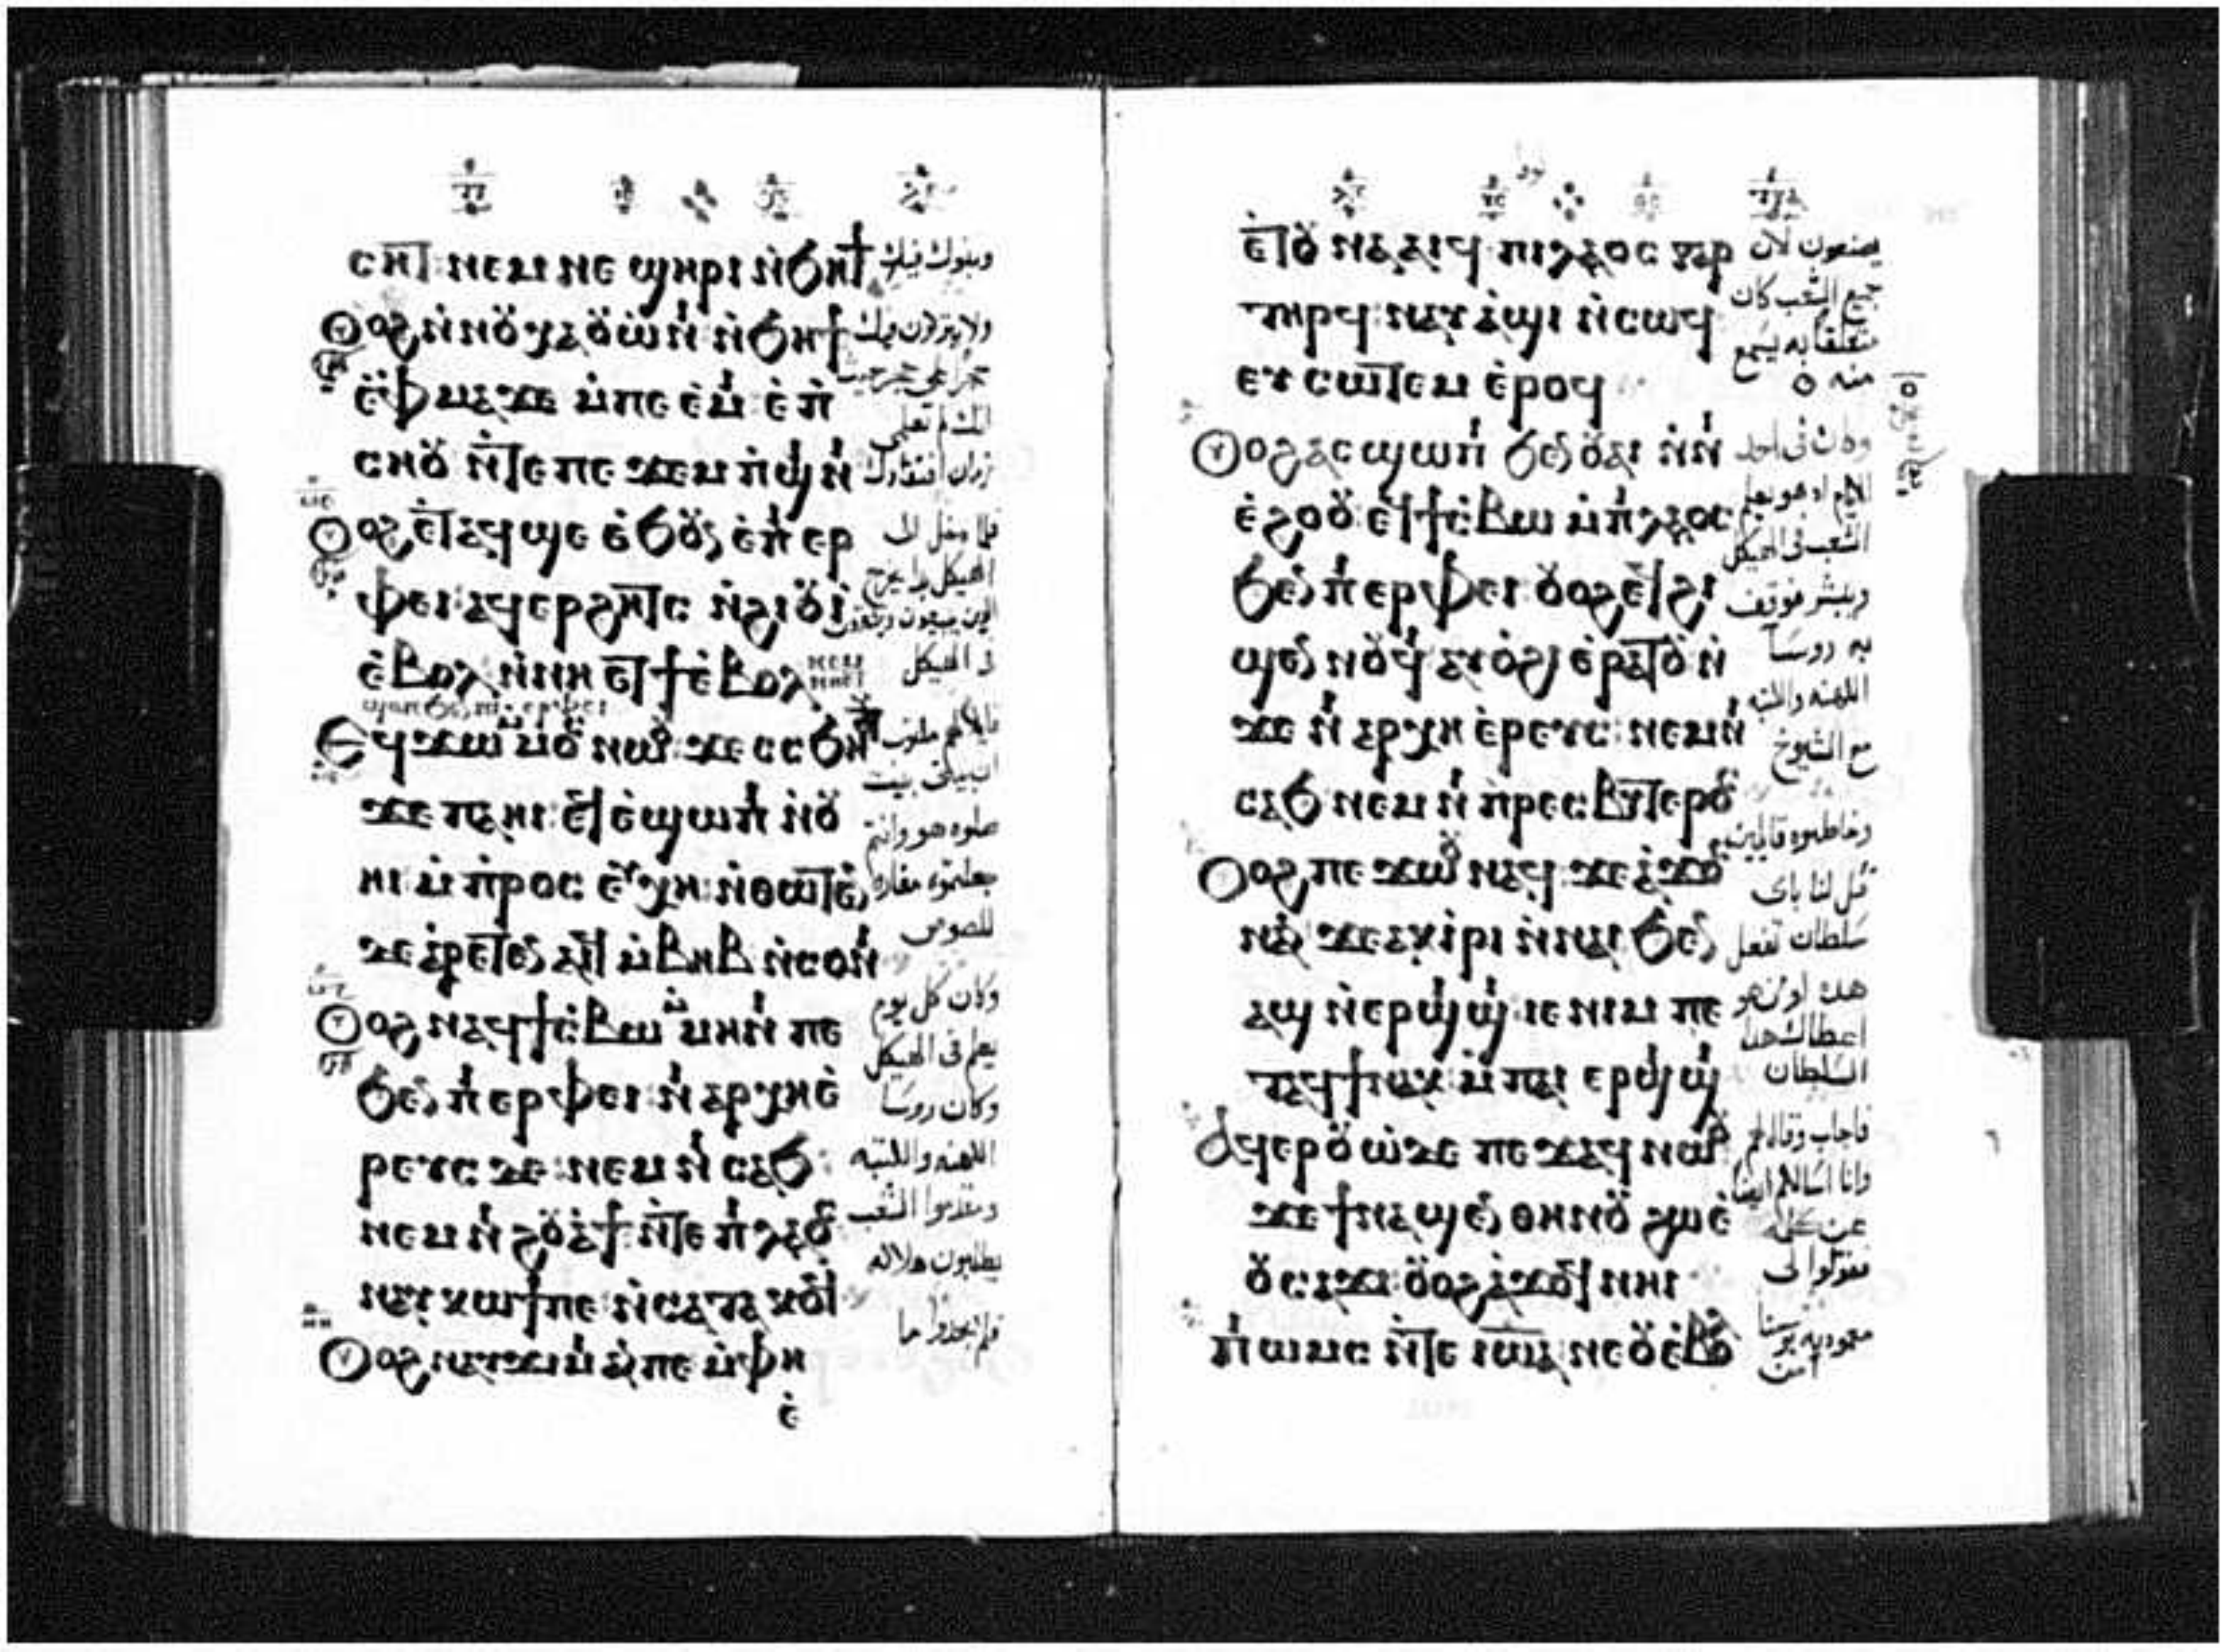 ⲥⲏϯ ⲛⲉⲙ ⲛⲉ ϣⲏⲣⲓ ⲛ̀ϧⲏϯ
ⲟⲩⲟϩ ⲛ̀ⲛⲟⲩⲭⲁⲟⲩⲱ̀ⲛⲓ ⲛ̀ϧⲏϯ
ⲉ̀ⲫⲙⲁ ϫⲉ ⲙ̀ⲡⲉ ⲉ̀ⲙⲓ ⲉ̀ⲡ̀
ⲥⲏⲟⲩ ⲛ̀ⲧⲉ ⲡⲉ ϫⲉⲙ ⲡ̀ϣⲓⲛⲓ
ⲟⲩⲟϩ ⲉ̀ⲧⲁϥ ϣⲉ ⲉ̀ϧⲟⲩⲛ ⲉ̀ⲡⲓ ⲉⲣ
ⲫⲉⲓ ⲁϥⲉⲣϩⲏⲧⲥ ⲛ̀ϩⲓⲟⲩⲓ̀
ⲉ̀ⲃⲟⲗ ⲛ̀ⲛⲏ ⲉⲧϯ ⲉ̀ⲃⲟⲗ ⲛⲉⲙ ⲛⲏⲉⲧ
ϣⲱⲡ ϧⲉⲛ ⲡⲓⲉⲣⲫⲉⲓ
ⲉϥϫⲱ ⲙ̀ⲙⲟⲥ ⲛⲱⲟⲩ ϫⲉ ⲥⲥϧⲏⲟⲩⲧ
ϫⲉ ⲡⲁ ⲏⲓ ⲉϥⲉ̀ϣⲱⲡⲓ ⲛ̀ⲟⲩ
ⲏⲓ ⲙ̀ⲡ̀ⲣⲟⲥ ⲉⲩⲭⲏ ⲛ̀ⲑⲱⲧⲉⲛ
ϫⲉ ⲁ̀ⲣⲉⲧⲉⲛ ⲁⲓϥ ⲙ̀ⲃⲏⲃ ⲛ̀ⲥⲟⲛⲓ
ⲟⲩⲟϩ ⲛⲁϥϯⲥ̀ⲃⲱ ⲙ̀ⲙⲏⲛⲓ ⲡⲉ
ϧⲉⲛ ⲡⲓ ⲉⲣⲫⲉⲓ ⲛⲓ ⲁⲣⲭⲏⲉ̀
ⲣⲉⲩⲥ ϫⲉ ⲛⲉⲙ ⲛⲓ ⲥⲁϧ
ⲛⲉⲙ ⲛⲓ ϩⲟⲩⲁ̀ϯ ⲛ̀ⲧⲉ ⲡⲓ ⲗⲁⲟⲥ
ⲛⲁⲩ ⲕⲱϯ ⲡⲉ ⲛ̀ⲥⲁ ⲧⲁ ⲕⲟϥ
ⲟⲩⲟϩ ⲛⲁⲩϫⲓⲙⲓ ⲁⲛ ⲡⲉ ⲙ̀ⲫⲏ
ⲉ̀
وبنوك فيك
ولا يتركون فيك
حجرا على حجر حيث
انك لم تعلمي
زمان افتقادك
فلما دخل الى
الهيكل بدا يخرج
الذين يبيعون ويشترون
في الهيكل
قايلا لهم مكتوب
ان بيتي بيت
صلوه هو وانتم
جعلتموه مغارة
للصوص
وكان كل يوم
يعلم في الهيكل
وكان روسا
الكهنه والكتبه
ومقدموا الشعب
يطلبون هلاكه
فلم يجدوا ما
ⲉ̀ⲧⲟⲩ ⲛⲁ ⲁⲓϥ ⲡⲓⲗⲁⲟⲥ ⲅⲁⲣ
ⲧⲏⲣϥ ⲛⲁⲩ ⲁ̀ϣⲓ ⲛ̀ⲥⲱϥ
ⲉⲩ ⲥⲱⲧⲉⲙ ⲉ̀ⲣⲟϥ
ⲟⲩⲟϩ ⲁⲥϣⲱⲡⲓ ϧⲉⲛ ⲟⲩⲁⲓ ⲛ̀ⲛⲓ
ⲉ̀ϩⲟⲟⲩ ⲉϥϯⲥ̀ⲃⲱ ⲙ̀ⲡⲓⲗⲁⲟⲥ
ϧⲉⲛ ⲡⲓ ⲉⲣⲫⲉⲓ ⲟⲩⲟϩ ⲉϥϩⲓ
ϣⲉⲛ ⲛⲟⲩϥⲓ ⲁⲩⲟ̀ϩⲓ ⲉ̀ⲣⲁⲧⲟⲩ ⲛ̀
ϫⲉ ⲛⲓ ⲁⲣⲭⲏ ⲉ̀ⲣⲉⲩⲥ ⲛⲉⲙ ⲛⲓ
ⲥⲁϧ ⲛⲉⲙ ⲛⲓ ⲡ̀ⲣⲉⲥⲃⲩⲧⲉⲣⲟⲥ
ⲟⲩⲟϩ ⲡⲉ ϫⲱⲟⲩ ⲛⲁϥ ϫⲉ ⲁ̀ϫⲟⲥ
ⲛⲁⲛ ϫⲉ ⲁⲕⲓ̀ⲣⲓ ⲛ̀ⲛⲁⲓ ϧⲉⲛ
ⲁϣ ⲛ̀ⲉⲣϣⲓϣⲓ ⲓⲉ ⲛⲓⲙ ⲡⲉ
ⲧⲁϥϯ ⲛⲁⲕ ⲙ̀ⲡⲁⲓ ⲉⲣϣⲓϣⲓ
ⲁϥⲉⲣⲟⲩⲱ̀ ϫⲉ ⲡⲉ ϫⲁϥ ⲛⲱⲟⲩ
ϫⲉ ϯⲛⲁ ϣⲉⲛ ⲑⲏⲛⲟⲩ ϩⲱ ⲉ̀
ⲟⲩⲥⲁϫⲓ ⲟⲩⲟϩ ⲁ̀ϫⲟϥ ⲛⲏⲓ
ⲡⲓ ⲱⲙⲥ ⲛ̀ⲧⲉ ⲓⲱⲁ ⲛⲉ ⲟⲩⲉ̀ⲃⲟⲗ
يصنعون لان
جميع الشعب كان
متعلقا به يسمع
منه
وكان في احد
الايام اذ هو يعلم
الشعب في الهيكل
ويبشر فوقف
به روسا
الكهنه والكتبه
مع الشيوخ
وخاطبوه قايلين
قل لنا باى
سلطان تفعل
هذا او من هو
اعطاك هذا
السلطان
فاجاب وقال لهم
وانا اسالكم ايضا
عن كلمه
فقولوا لي
معموديه يوحنا